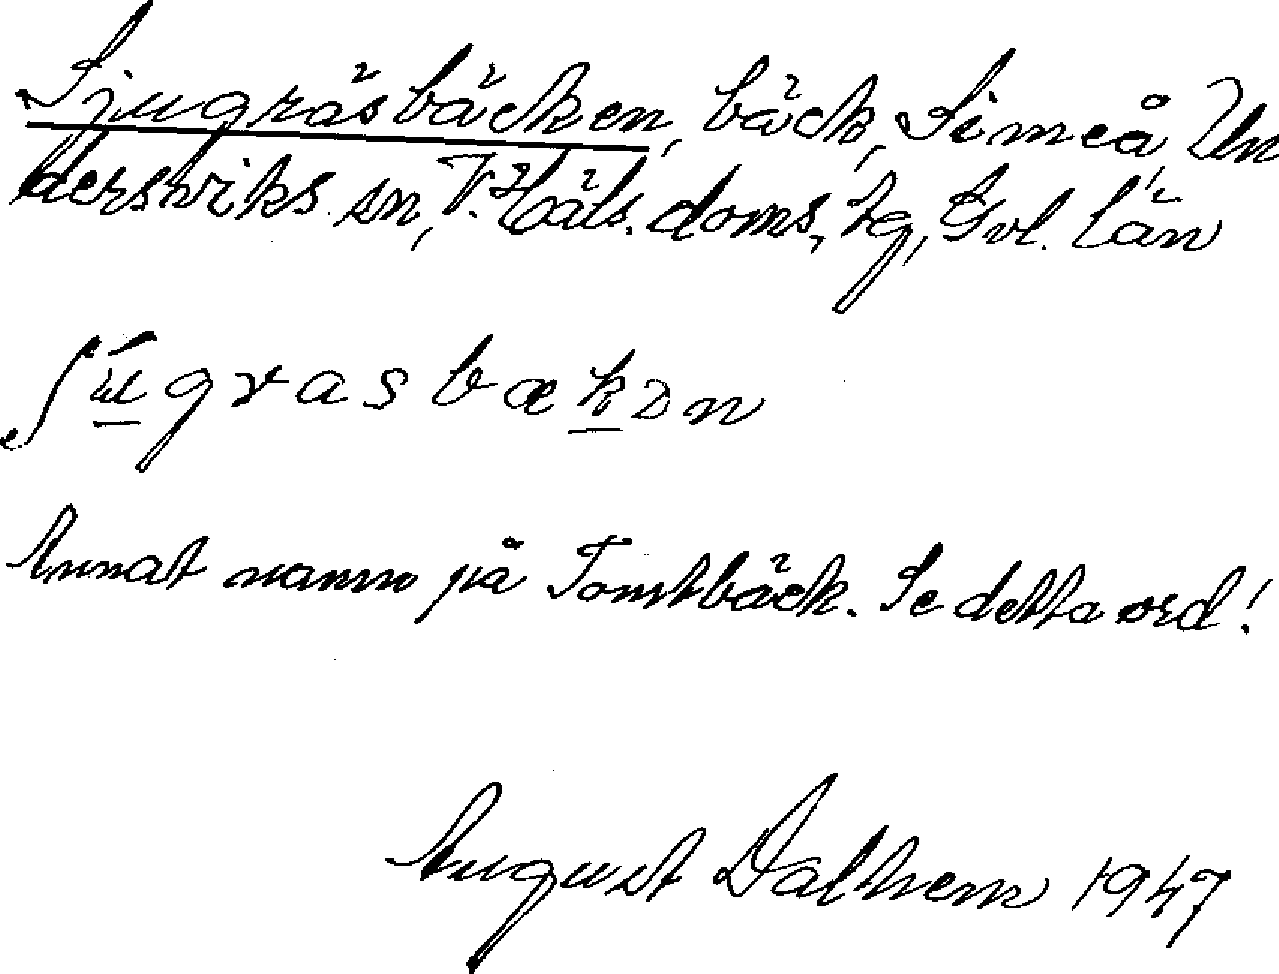 Sjugräsbäcken, bäck, Simeå, Un
dersviks sn, V. Häls. doms, tg, Gvl. län
ʃúgrasbækən
Annat namn på Tomtbäck. Se detta ord!
August Dalhem 1947